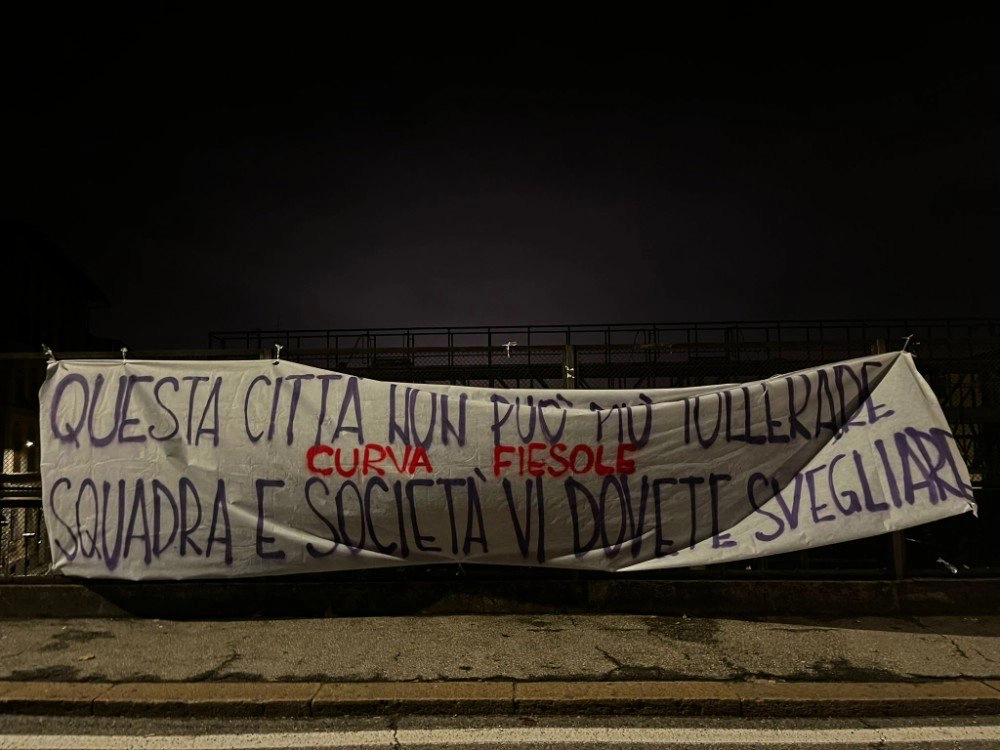 QUESTA CITTA NON PUÒ PIÙ TOLLERARE
CURVA FIESOLE
SQUADRA E SOCIETÀ VI DOVETE SVEGLIARE